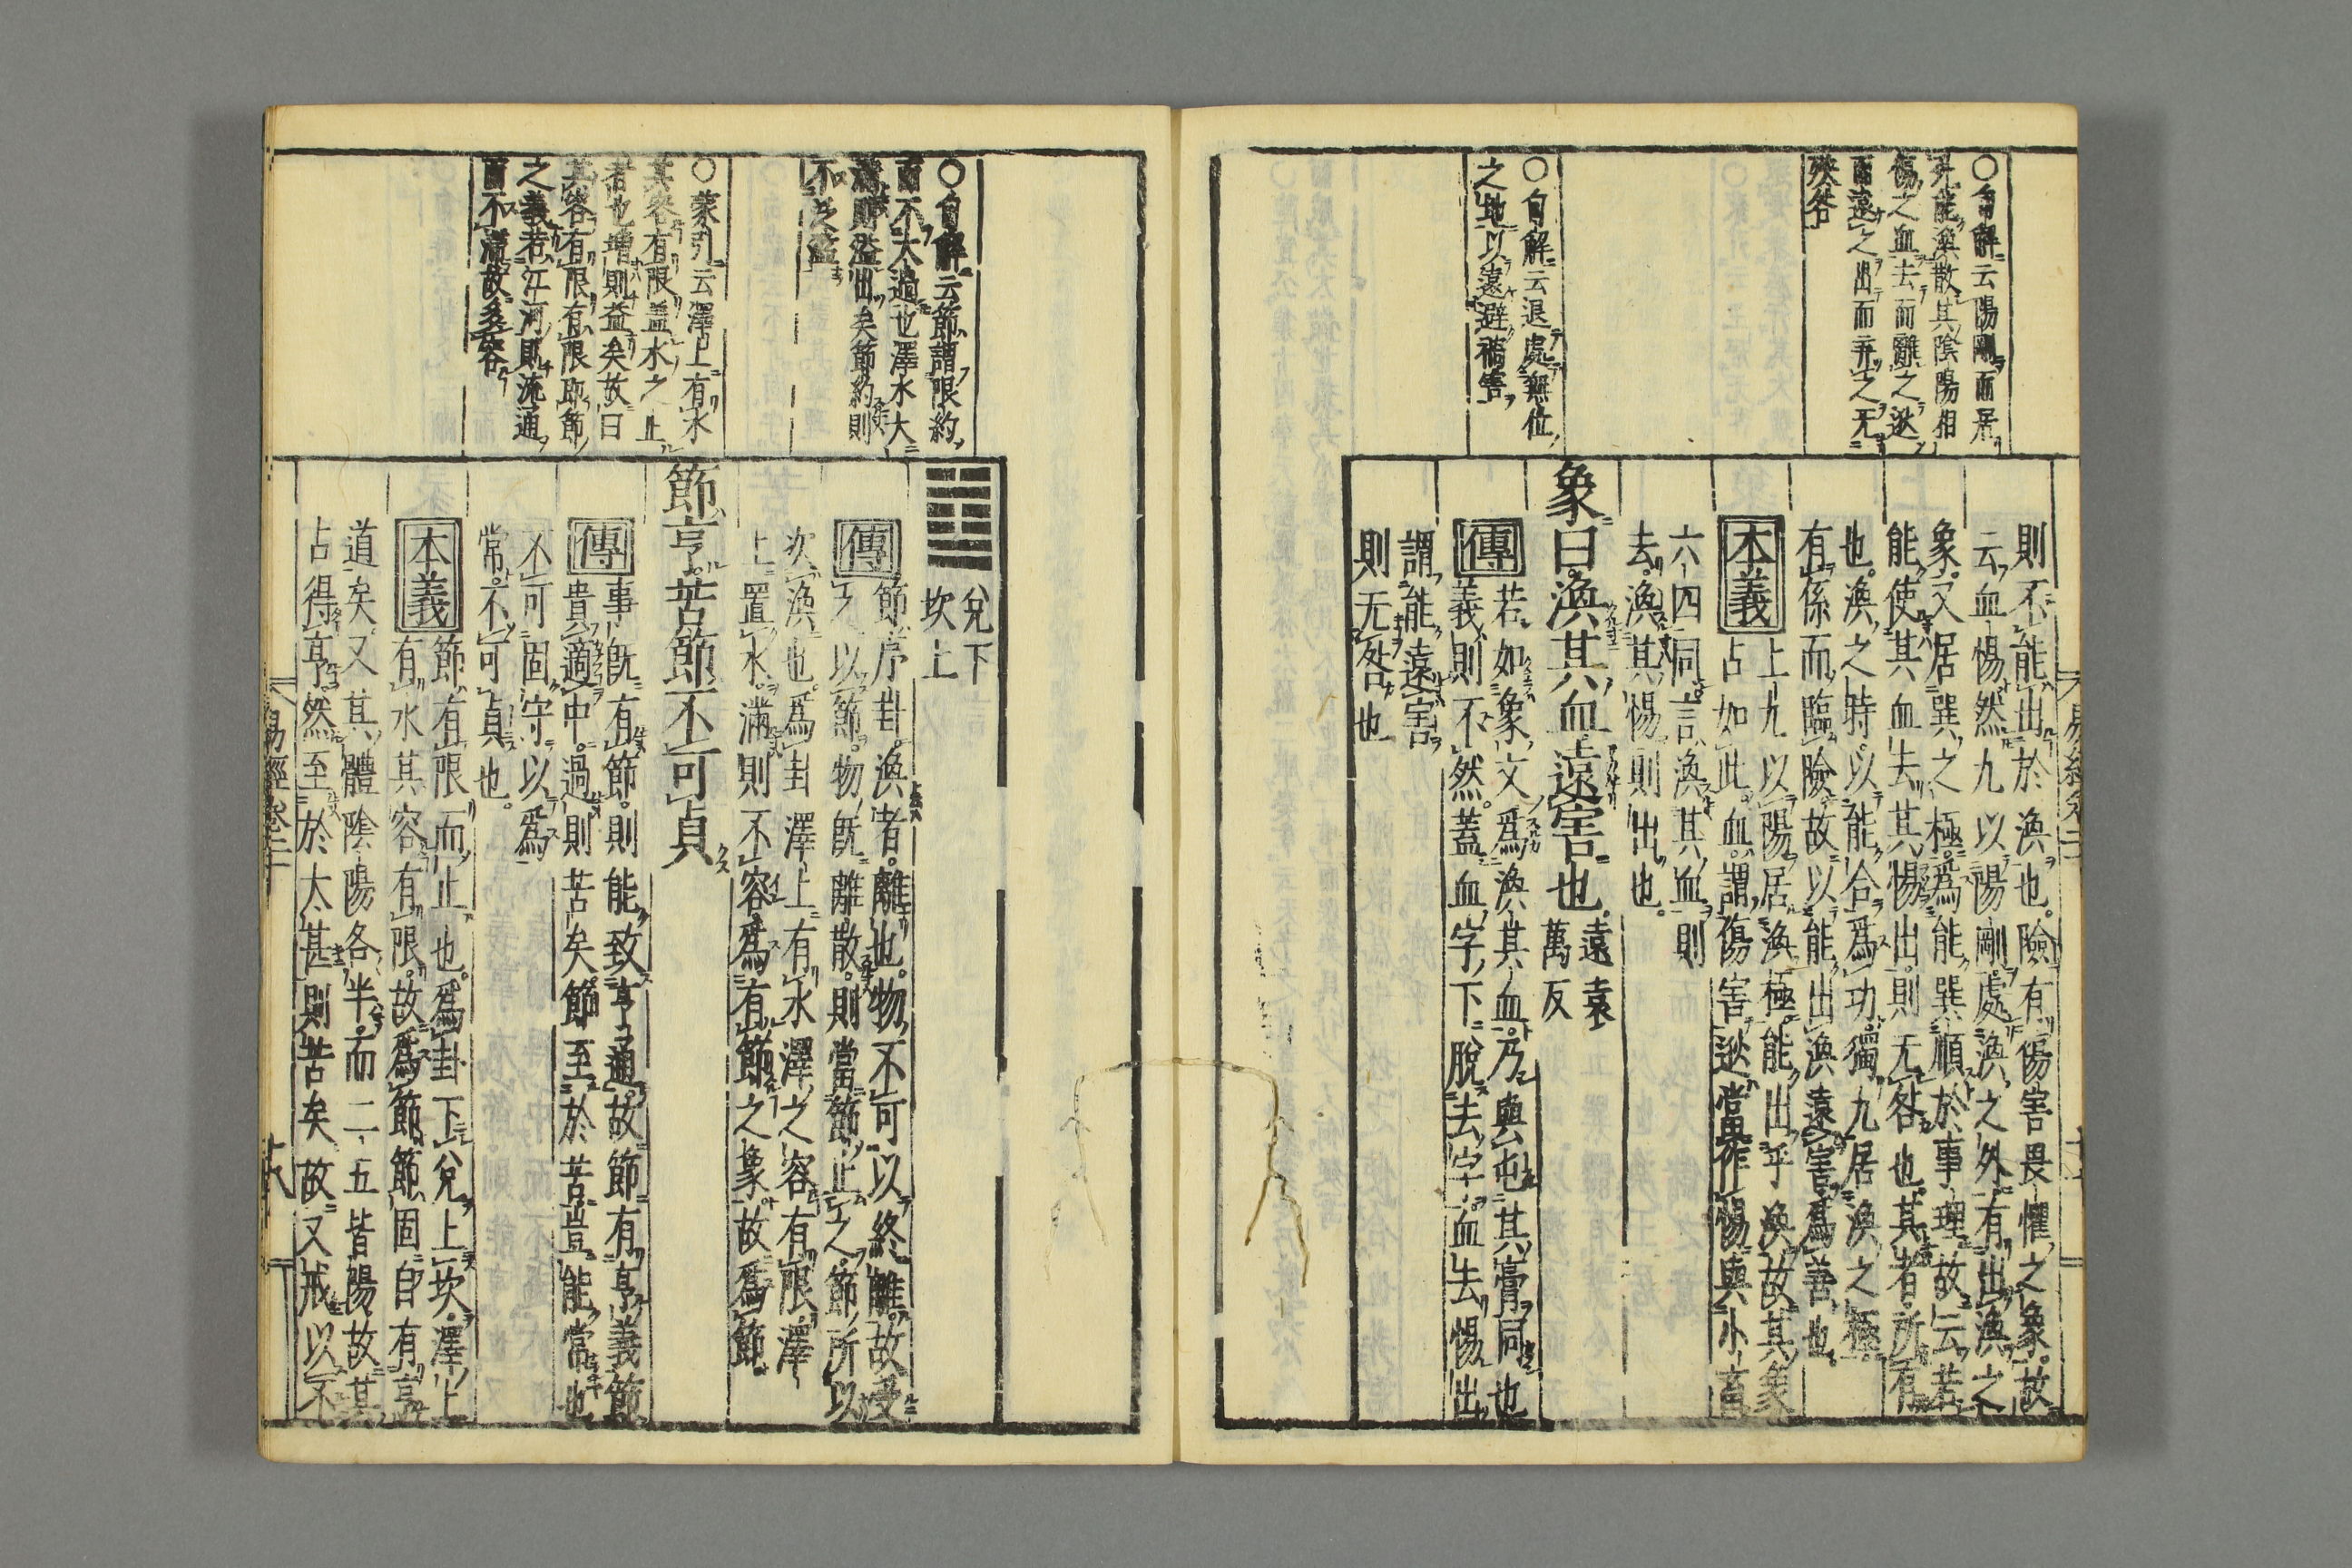 ○自解云陽剛而居
死能渙散其陰陽相
傷之血去而離之逖
而遠之出而弃之无
殃咎
○自解云退處無位
之地以遠避禍害
則不能出於渙也。險有傷害畏懼之象。故
云血惕然九以陽剛。處渙之外。有出渙之
象。又居巽之極。爲能巽順於事理。故云若
能使其血去。其惕出。則无咎也。其者。所有
也。渙之時。以能合爲功。獨九居渙之極。
有係而臨險。故以能出渙遠害爲善也。
本義
上九以陽居渙極。能出乎渙。故其象
占如此。血謂傷害。逖當作惕。與小畜
六四同。言渙其血則
去。渙其惕則出也。
象曰。渙其血遠害也。
遠袁
萬反
傳
若如象文爲渙其血。乃與屯其膏同也
義則不然。蓋血字下。脫去字。血去惕出。
謂能遠害
則无咎也
易經卷二
○自解云節謂限約
而不太過也澤水大
滿則溢出矣節約則
不至溢
○蒙引云澤上有水
其容有限蓋水之止
者也增則益矣故曰
其容有限有限取節
之義若江河則流通
而不滿故多容
兌下
坎上
傳
節。序卦。渙者。離也。物不可以終離。故受
之以節。物旣離散。則當節止之。節所以
次渙也。爲卦澤上有水。澤之容有限。澤
上置水。滿則不容。爲有節之象。故爲節。
節亨。苦節不可貞
傳
事旣有節。則能致亨通。故節有亨義節
貴適中。過則苦矣。節至於苦。豈能常也
不可固守。以爲
常。不可貞也。
本義
節有限而止也。爲卦下兌上坎。澤上
有水其容有限。故爲節。節固自有亨
道矣。又其體陰陽各半。而二五皆陽。故其
占得亨。然至於太甚。則苦矣。故又戒以不
易經卷二